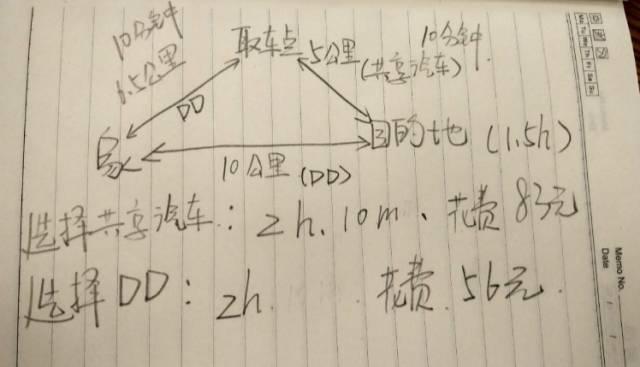 10分钟
6.5公里
取车点
5公里
10分钟
(共享汽车)
DD
家
目的地 (1.5h)
10公里 (DD)
选择共享汽车: 2h.10m、花费 83元
选择DD: 2h. 花费.56元.
Memo No.
Date / /
Mo Tu We Th Fr Sa Su